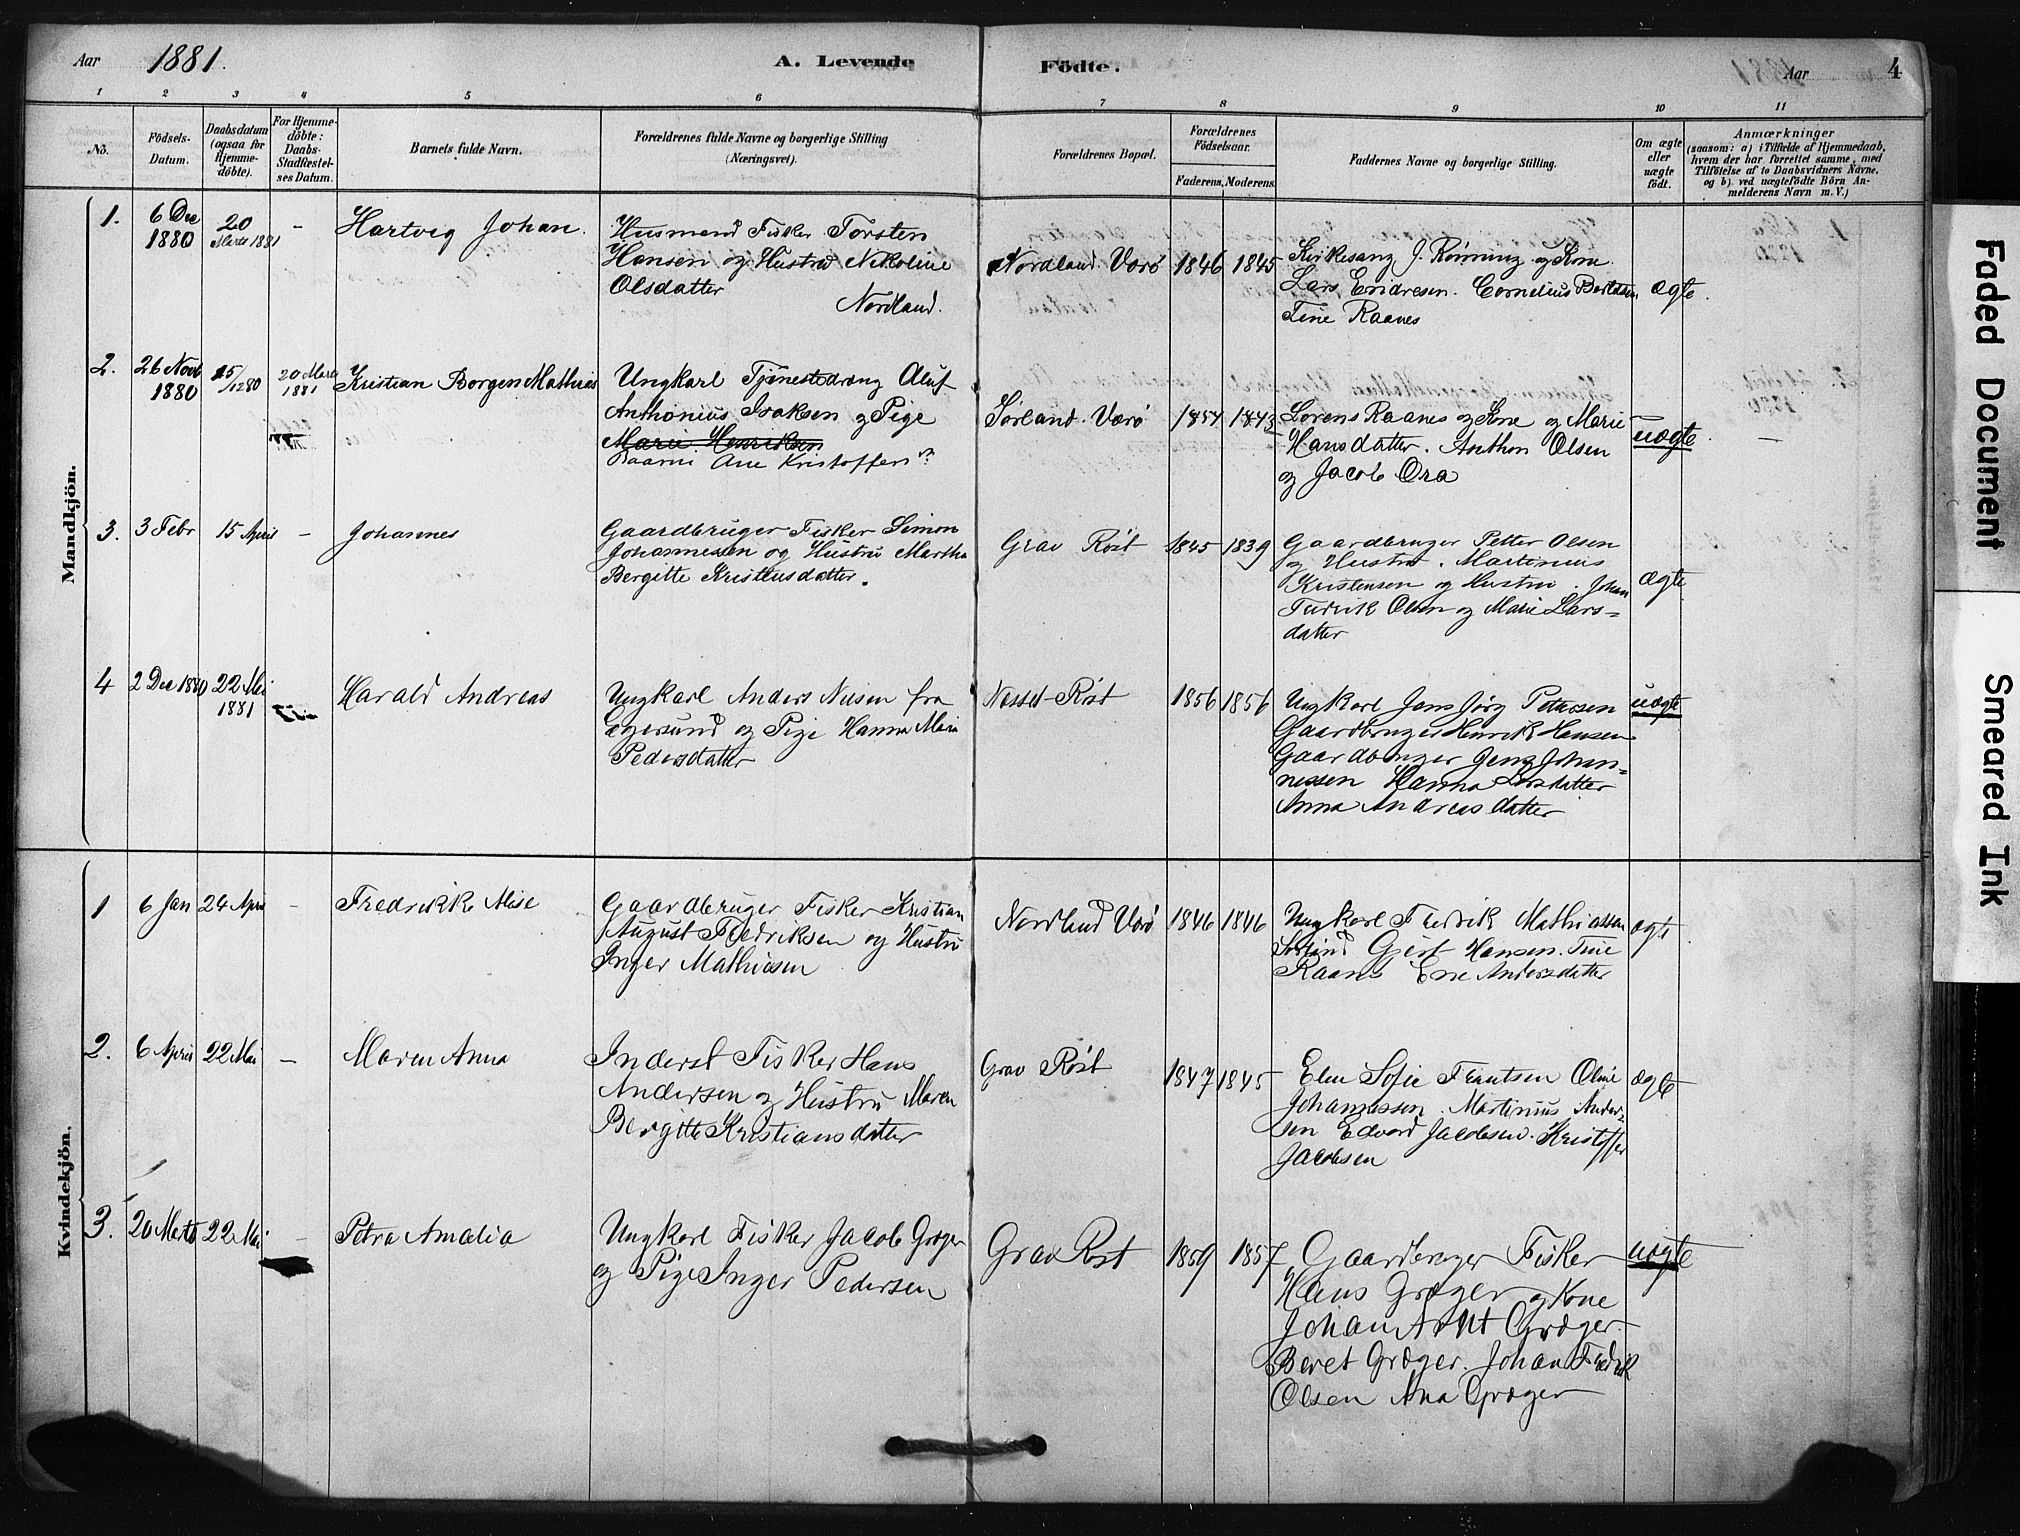 Aar 1881. A. Levende Födte. Aar 4
1 2 3 4 5 6 7 8 9 10 11
Nô.
Födsels-Datum.
Daabsdatum (ogsaa for Hjemme-döbte).
For Hjemme-döbte: Daabs-Stadfæstel-ses Datum.
Barnets fulde Navn.
Forældrenes fulde Navne og borgerlige Stilling
(Næringsvei).
Forældrenes Bopæl.
Forældrenes Födselsaar.
Faderens. Moderens.
Faddernes Navne og borgerlige Stilling.
Om ægte eller uægte födt.
Anmærkninger
(saasom: a) i Tilfælde af Hjemmedaab,
hvem der har forrettet samme, med
Tilföielse af to Daabsvidners Navne,
og b) ved uægtefödte Börn An-
melderens Navn m. V.)
Mandkjön.
1. 6 Dec 1880 20 Marts 1881 - Hartvig Johan.
Husmand Fisker Torsten
Hansen og Hustru Nikoline
Olsdatter
Nordland.
Nordland Værö 1846 1845
Kirkesang. J. Rönning og Kone
Lars Endresen. Cornelius
Tine Raanes
ægte.
2. 26 Novb 1880 15/12 80 20 Marts 1881 Kristian Borgen Mathias
Ungkarl Tjenestedreng Oluf
Anthonius Isaksen og Pige
Marie Henriksen
Ane Kristoffer
Sørland Værö 1854 1843
Lorens Raanes og Kone og Marie
Hansdatter. Anthon Olsen
og Jacob
uægte. -
3. 3 Febr 15 April - Johannes
Gaardbruger Fisker Simon
Johannessen og Hustru Martha
Bergitte Kristensdatter.
Grav Röst 1845 1839
Gaardbruger Petter Olsen
og Hustru. Martinius
Kristensen og Hustru. Johan
Fredrik Olsen og Marie Lars=
datter
ægte
4 2 Dec 1880 22 Mai 1881 Harald Andreas
Ungkarl Anders Nilsen fra
Egersund og Pige Hanna Maria
Pedersdatter
Nesset Röst 1856 1856
Ungkarl Jens Jörg Petersen
Gaardbruger Henrik Hansen
Gaardbruger Jens Johan=
nessen Hanna Larsdatter
Anna Andreasdatter
uægte
Kvindekjön.
1 6 Jan 24 April - Fredrikke Alise
Gaardbruger Fisker Kristian
August Fredriksen og Hustru
Inger Mathiesen
Nordland Værö 1846 1846
Ungkarl Fredrik Mathiassen
Sørland Gjert Hansen. Tine
Raanes Ene Andersdatter
ægte
2. 6 April 22 Mai - Maren Anna
Inderst Fisker Hans
Andersen og Hustru Maren
Bergitte Kristiansdatter
Grav Röst 1847 1845
Elen Sofie Frantsen Oline
Johannessen. Martinius Ander=
sen Edvard Jacobsen. Kristoffer
Jacobsen
ægte
3. 20 Marts 22 Mai - Petra Amalia
Ungkarl Fisker Jacob Græger
og Pige Inger Pedersen
Grav Röst 1859 1857
Gaardbruger Fisker
Hans Græger og Kone
Johan Arnt Græger.
Beret Græger. Johan Fredrik
Olsen Ana Græger
uægte
Faded Document
Smeared Ink